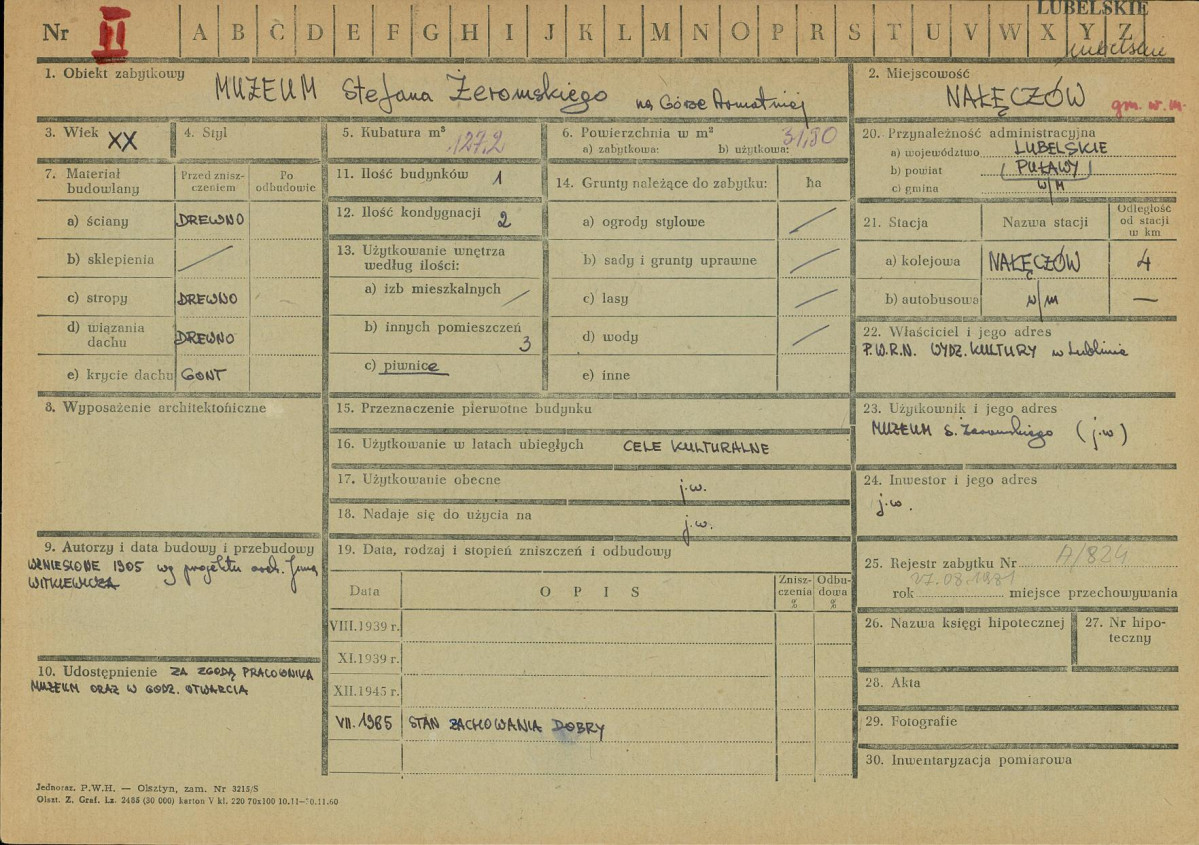 LUBELSKIE
Nr II A B C D E F G H I J K L M N O P R S T U V W X Y Z
lubelskie
1. Obiekt zabytkowy MUZEUM Stefana Żeromskiego na Górze Armatniej
2. Miejscowość
NAŁĘCZÓW gm. w. m.
3. Wiek XX
4. Styl
5. Kubatura m³ 127,2
6. Powierzchnia w m² 31,80
a) zabytkowa: b) użytkowa:
7. Materiał budowlany
Przed zniszczeniem
Po odbudowie
a) ściany DREWNO
b) sklepienia /
c) stropy DREWNO
d) wiązania dachu DREWNO
e) krycie dachu GONT
8. Wyposażenie architektoniczne
9. Autorzy i data budowy i przebudowy
WZNIESIONE 1905 wg projektu arch. Jana
WITKIEWICZA
10. Udostępnienie ZA ZGODĄ PRACOWNIKA
MUZEUM ORAZ W GODZ. OTWARCIA
11. Ilość budynków 1
12. Ilość kondygnacji 2
13. Użytkowanie wnętrza
według ilości:
a) izb mieszkalnych /
b) innych pomieszczeń 3
c) piwnice
14. Grunty należące do zabytku: ha
a) ogrody stylowe /
b) sady i grunty uprawne /
c) lasy /
d) wody /
e) inne
15. Przeznaczenie pierwotne budynku
16. Użytkowanie w latach ubiegłych CELE KULTURALNE
17. Użytkowanie obecne j.w.
18. Nadaje się do użycia na j.w.
19. Data, rodzaj i stopień zniszczeń i odbudowy
Data OPIS Zniszczenia % Odbudowa %
VIII.1939 r.
XI.1939 r.
XII.1945 r.
VII.1985 STAN ZACHOWANIA DOBRY
20. Przynależność administracyjna
a) województwo LUBELSKIE
b) powiat (PUŁAWY)
c) gmina w/m
21. Stacja Nazwa stacji Odległość od stacji w km
a) kolejowa NAŁĘCZÓW 4
b) autobusowa w/m —
22. Właściciel i jego adres
P.W.R.N. WYDZ. KULTURY w Lublinie
23. Użytkownik i jego adres
MUZEUM S. Żeromskiego (j.w)
24. Inwestor i jego adres
j.w.
25. Rejestr zabytku Nr A/824
27.08.1981
rok miejsce przechowywania
26. Nazwa księgi hipotecznej
27. Nr hipoteczny
28. Akta
29. Fotografie
30. Inwentaryzacja pomiarowa
Jednoraz. P.W.H. — Olsztyn, zam. Nr 3215/S
Olszt. Z. Graf. Lz. 2485 (30 000) karton V kl. 220 70x100 10.11—10.11.60